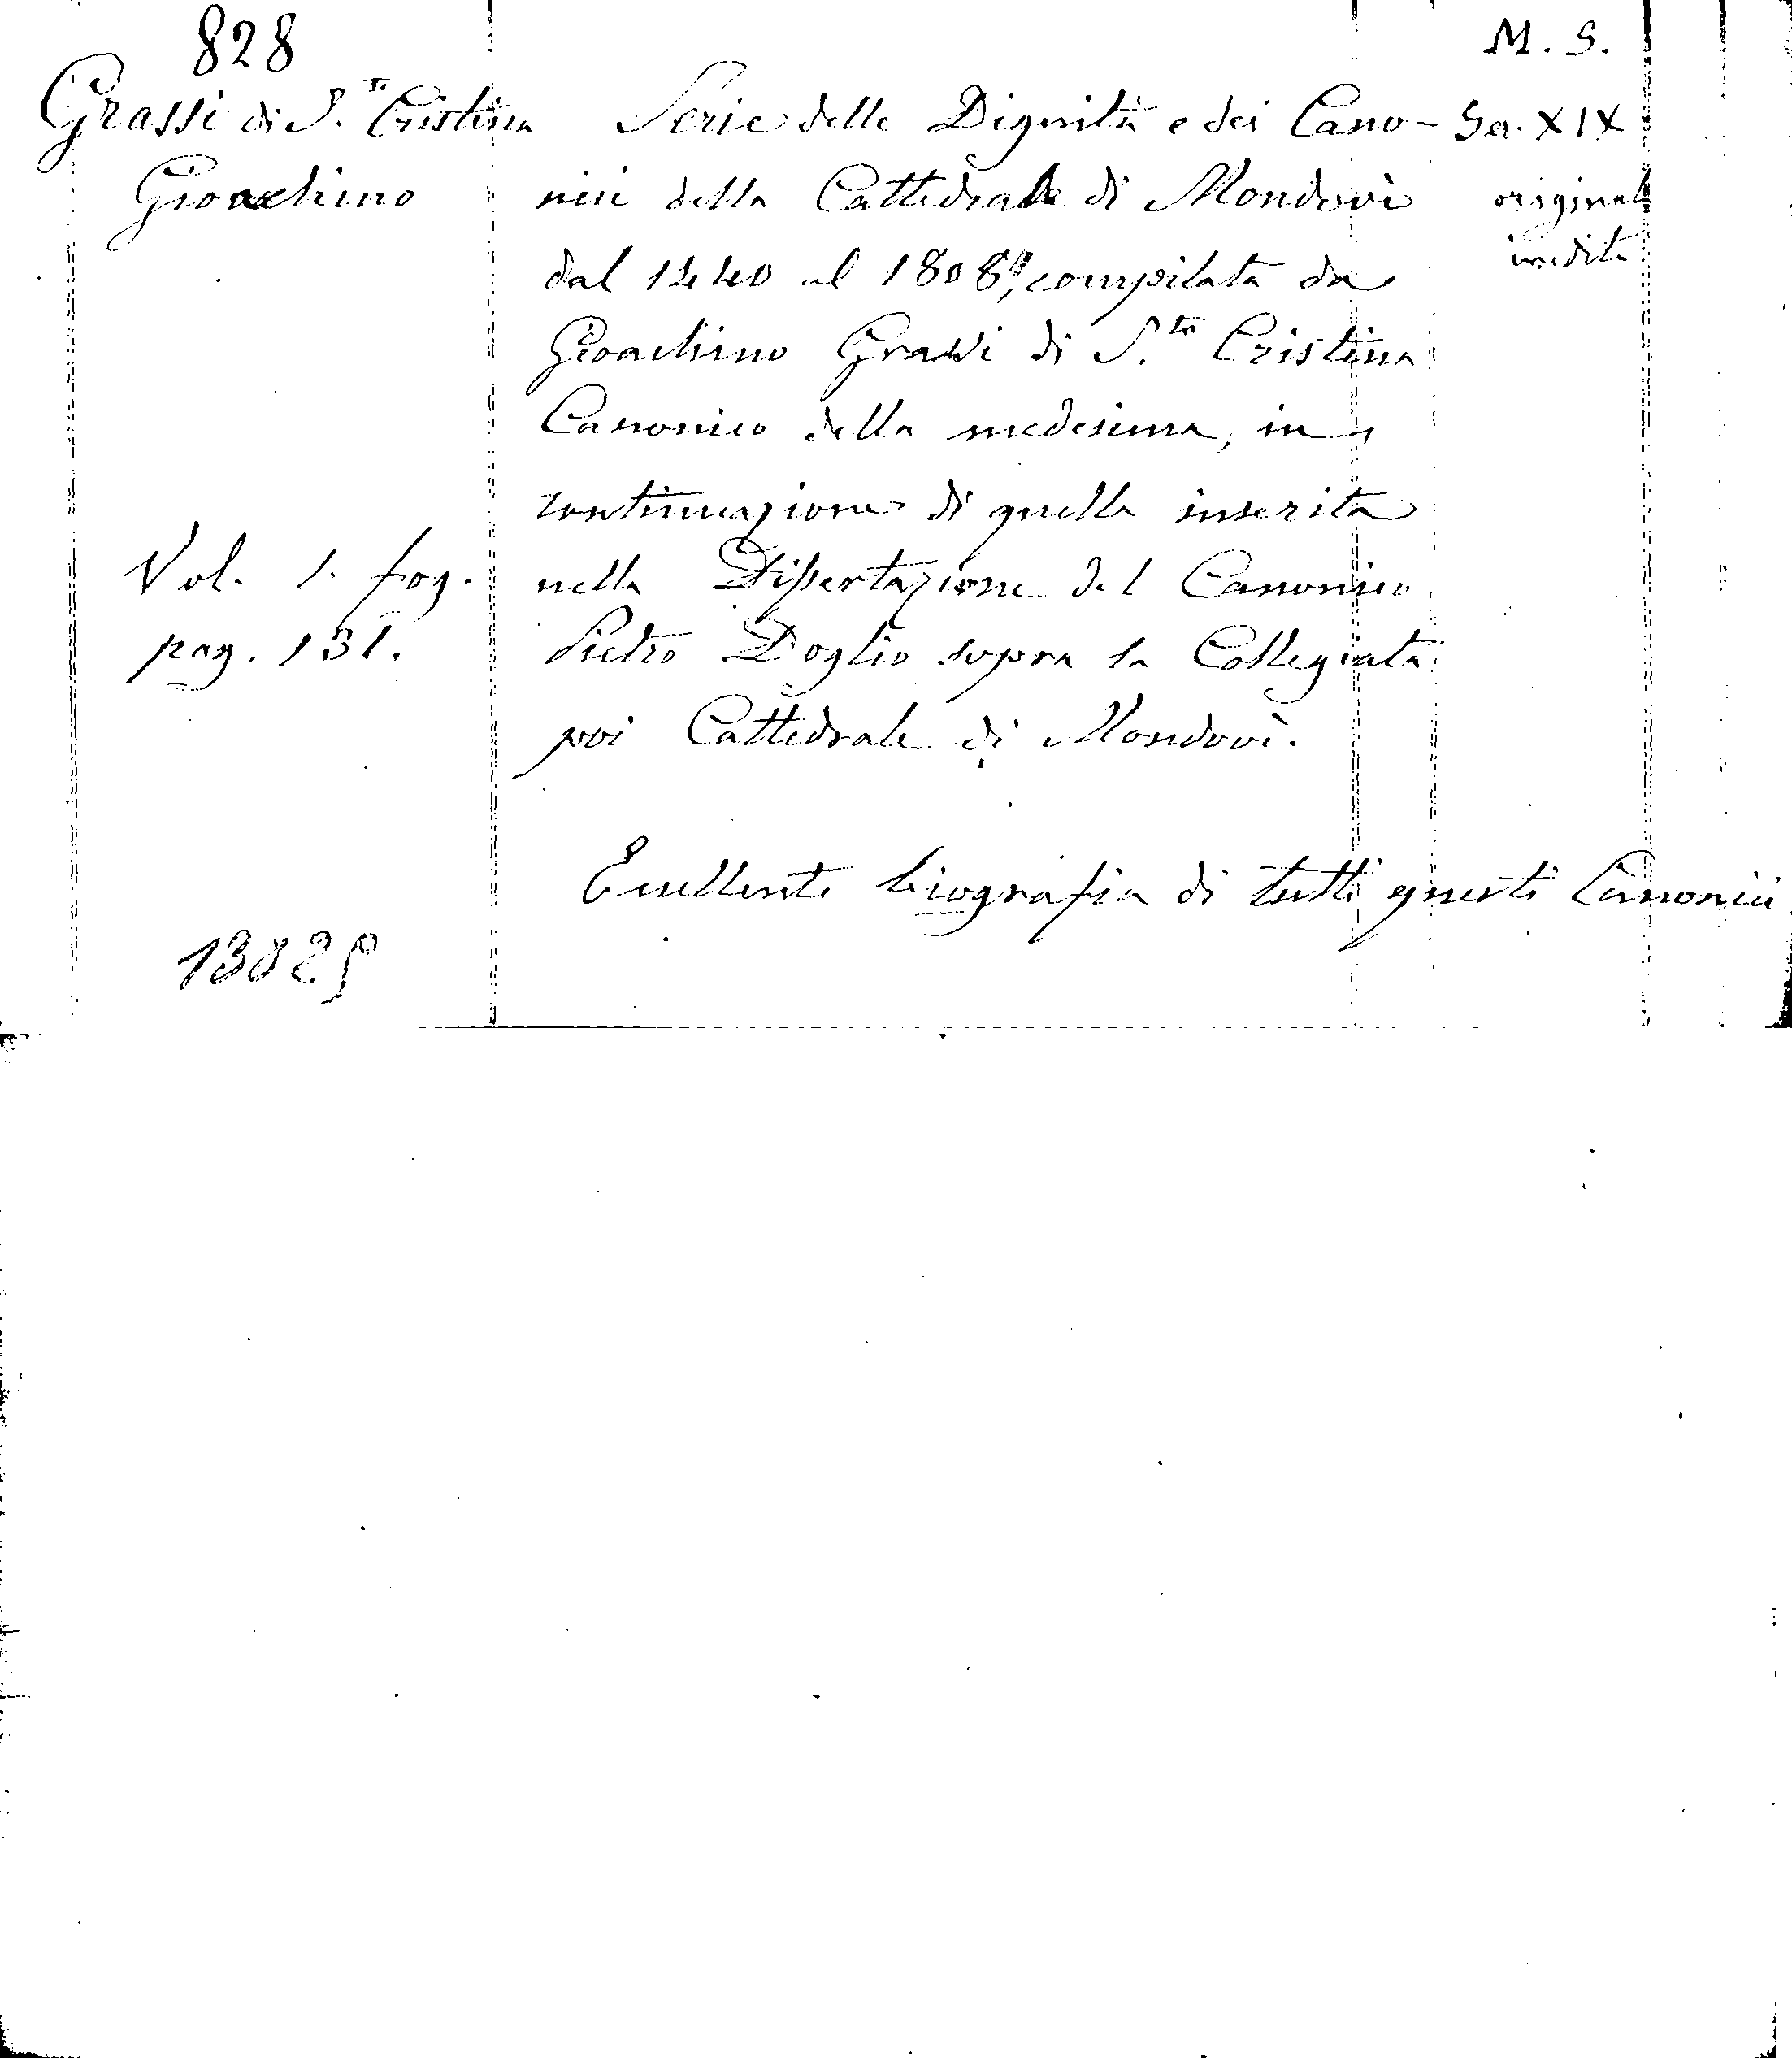 828
M. S.
Grassi di S.ta Cristina
Gioachino
Serie delle Dignità e dei Cano-
nici della Cattedrale di Mondovì
dal 1440 al 1808, compilata da
Gioachino Grassi di S.ta Cristina
Canonico della medesima, in
continuazione di quella inserita
nella Dissertazione del Canonico
Pietro Doglio sopra la Collegiata
poi Cattedrale di Mondovì.
Se. XIX
originale
inedita
Vol. 1. fog.
pag. 131.
Eccellente biografia di tutti questi Canonici
13829